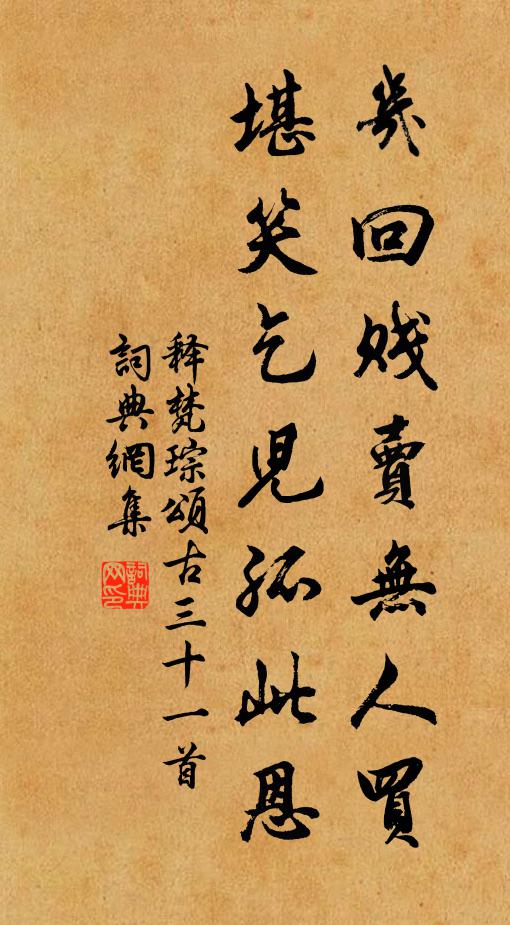 幾回賤賣無人買
堪笑乞兒孤此恩
释梵琮頌古三十一首
詞典網集
詞典网印